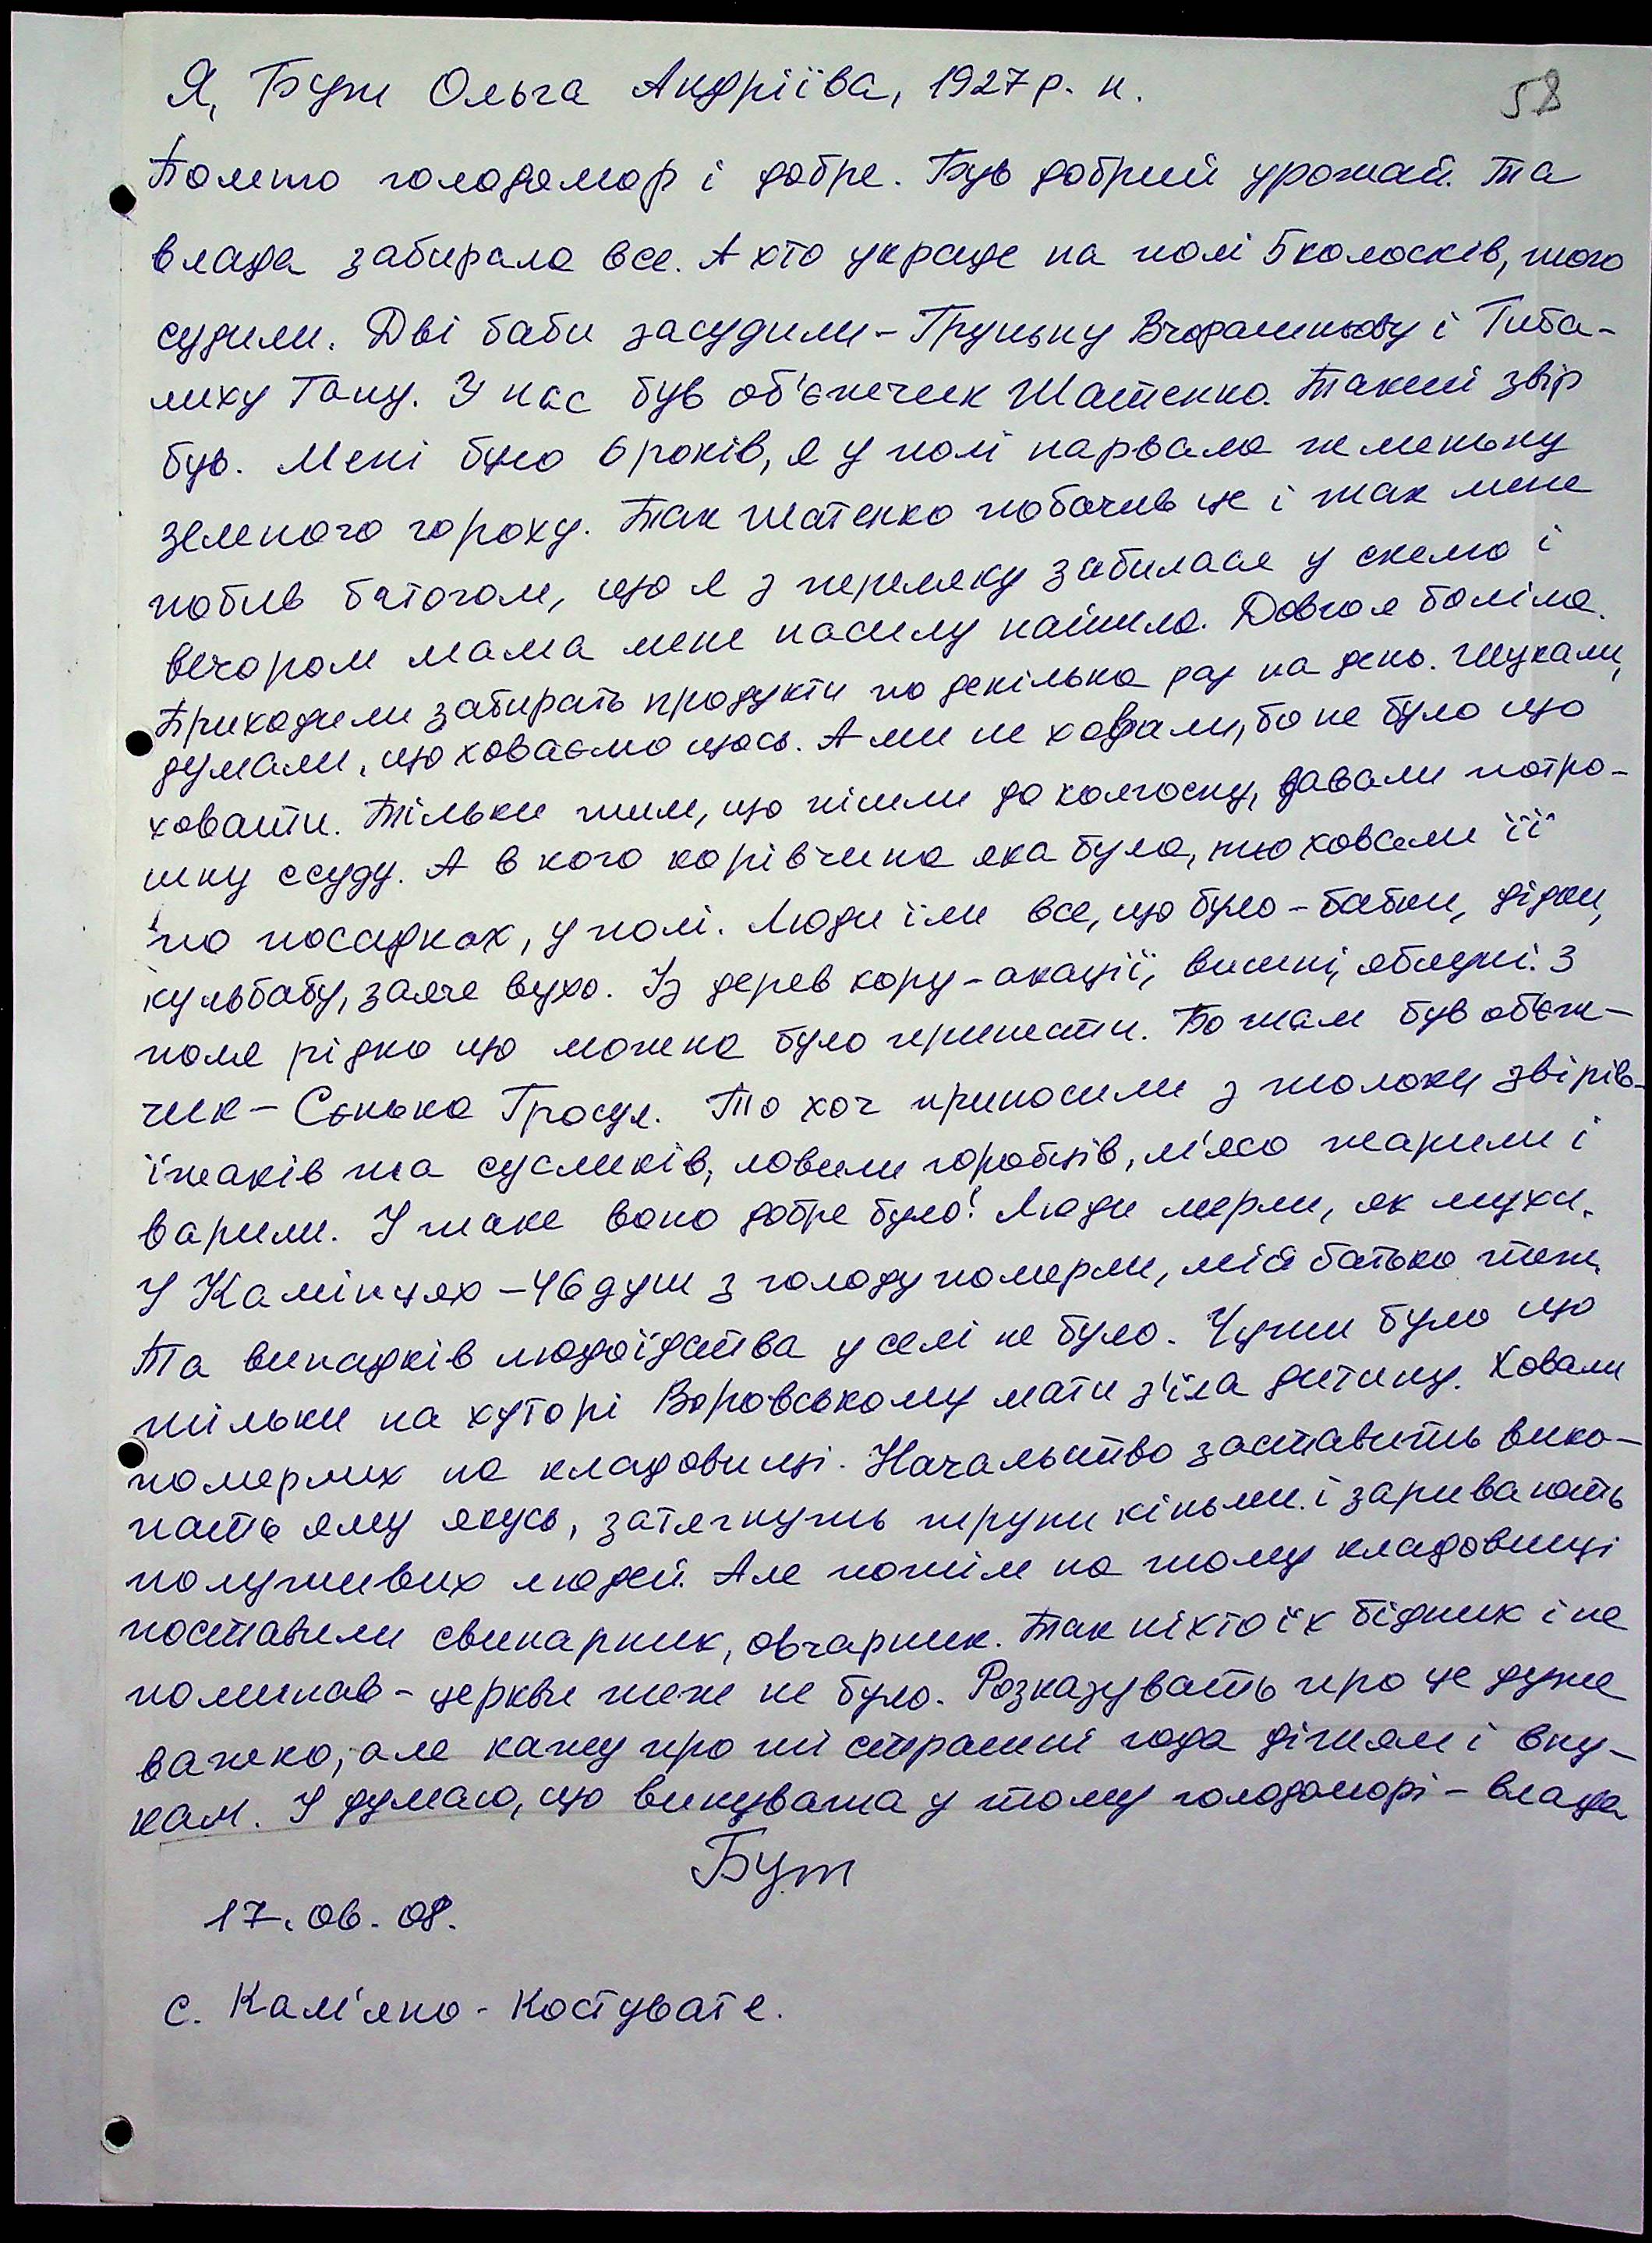 Я, Бут Ольга Андріїва, 1927 р. н.
58
Помто голодомор і добре. Був добрий урожай. Та
влада забирала все. А хто украде на полі 5 колосків, того
судили. Дві баби засудили - Груньку Вчорашньову і Гиба-
лиху Гану. У нас був об'єпечик Шатенко. Такий звір
був. Мені було 6 років, я у полі нарвала жменьку
зеленого гороху. Так Шатенко побачив це і так мене
побив батогом, що я з переляку забилася у скелю і
вечором мама мене насилу найшла. Довго я боліла.
Приходили забирать продукти по декілька раз на день. Шукали,
думали, що ховаємо щось. А ми не ховали, бо не було що
ховати. Тільки тим, що пішли до колгоспу, давали потро-
шку ссуду. А в кого корівчина яка була, то ховали її
по посадках, у полі. Люди їли все, що було - бабки, дідки,
кульбабу, заяче вухо. Із дерев кору - акації, вишні, яблуні. З
поля рідко що можна було принести. Бо там був об'єж-
чик - Сєнька Гросул. То хоч приносили з толоки звірів -
їжаків та сусликів, ловили горобців, м'ясо жарили і
варили. І таке воно добре було! Люди мерли, як мухи.
У Камінцях - 46 душ з голоду померли, мій батько теж.
Та випадків людоїдства у селі не було. Чутки було що
тільки на хуторі Воровському мати з'їла дитину. Ховали
померлих на кладовищі. Начальство заставить вико-
пать яму якусь, затягнуть трупи кіньми і заривають
полуживих людей. Але потім на тому кладовищі
поставили свинарник, овчарник. Так ніхто їх бідних і не
поминав - церкви теж не було. Розказувать про це дуже
важко, але кажу про ті страшні года дітям і вну-
кам. І думаю, що винувата у тому голодоморі - влада
Бут
17. 06. 08.
с. Кам'яно - Костувате.